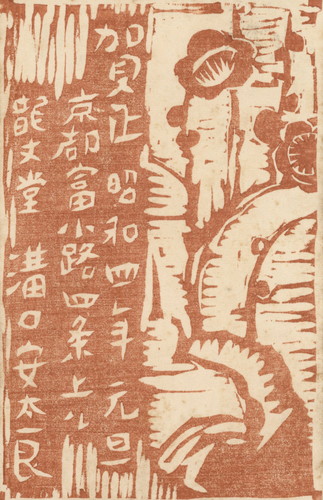 賀正 昭和四年 元旦
京都富小路四条上ル
龍文堂 溝口安太良